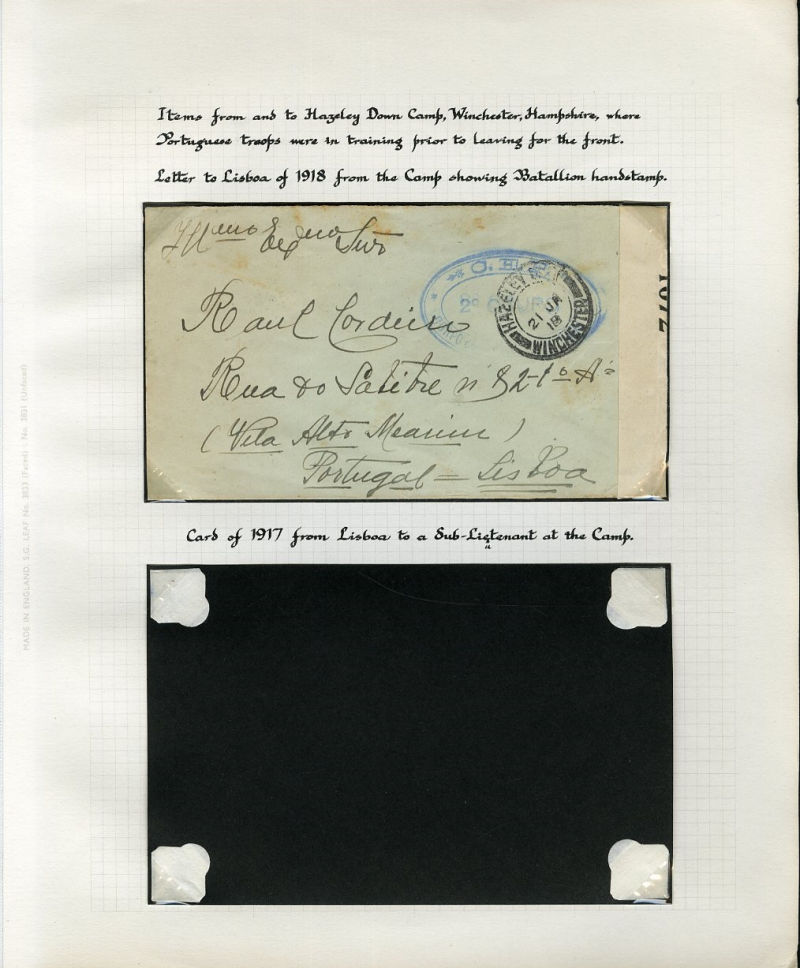 Items from and to Hazeley Down Camp, Winchester, Hampshire, where
Portuguese troops were in training prior to leaving for the front.
Letter to Lisboa of 1918 from the Camp showing Batallion handstamp.
Illmo Exmo Snr
2º
HAZELEY
21 JA
18
WINCHESTER
Raul Cordeiro
Rua do Salitre nº 82-1º
(Vila Alto Mearim)
Portugal = Lisboa
Card of 1917 from Lisboa to a Sub-Lietenant at the Camp.
u
MADE IN ENGLAND. S.G. LEAF No. 3833 (Faced) - No. 3831 (Unfaced)